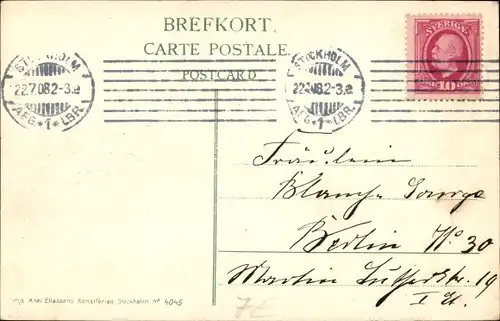 BREFKORT.
CARTE POSTALE.
POSTCARD
SVERIGE
10
STOCKHOLM
22.7.08 2-3.e
AFG.*1*LBR.
STOCKHOLM
22.7.08 2-3.e
AFG.*1*LBR.
Fräulein
Berlin No 30
Martin Lutherstr. 19
Imp. Axel Eliassons Konstförlag Stockholm Nº 4045
7E